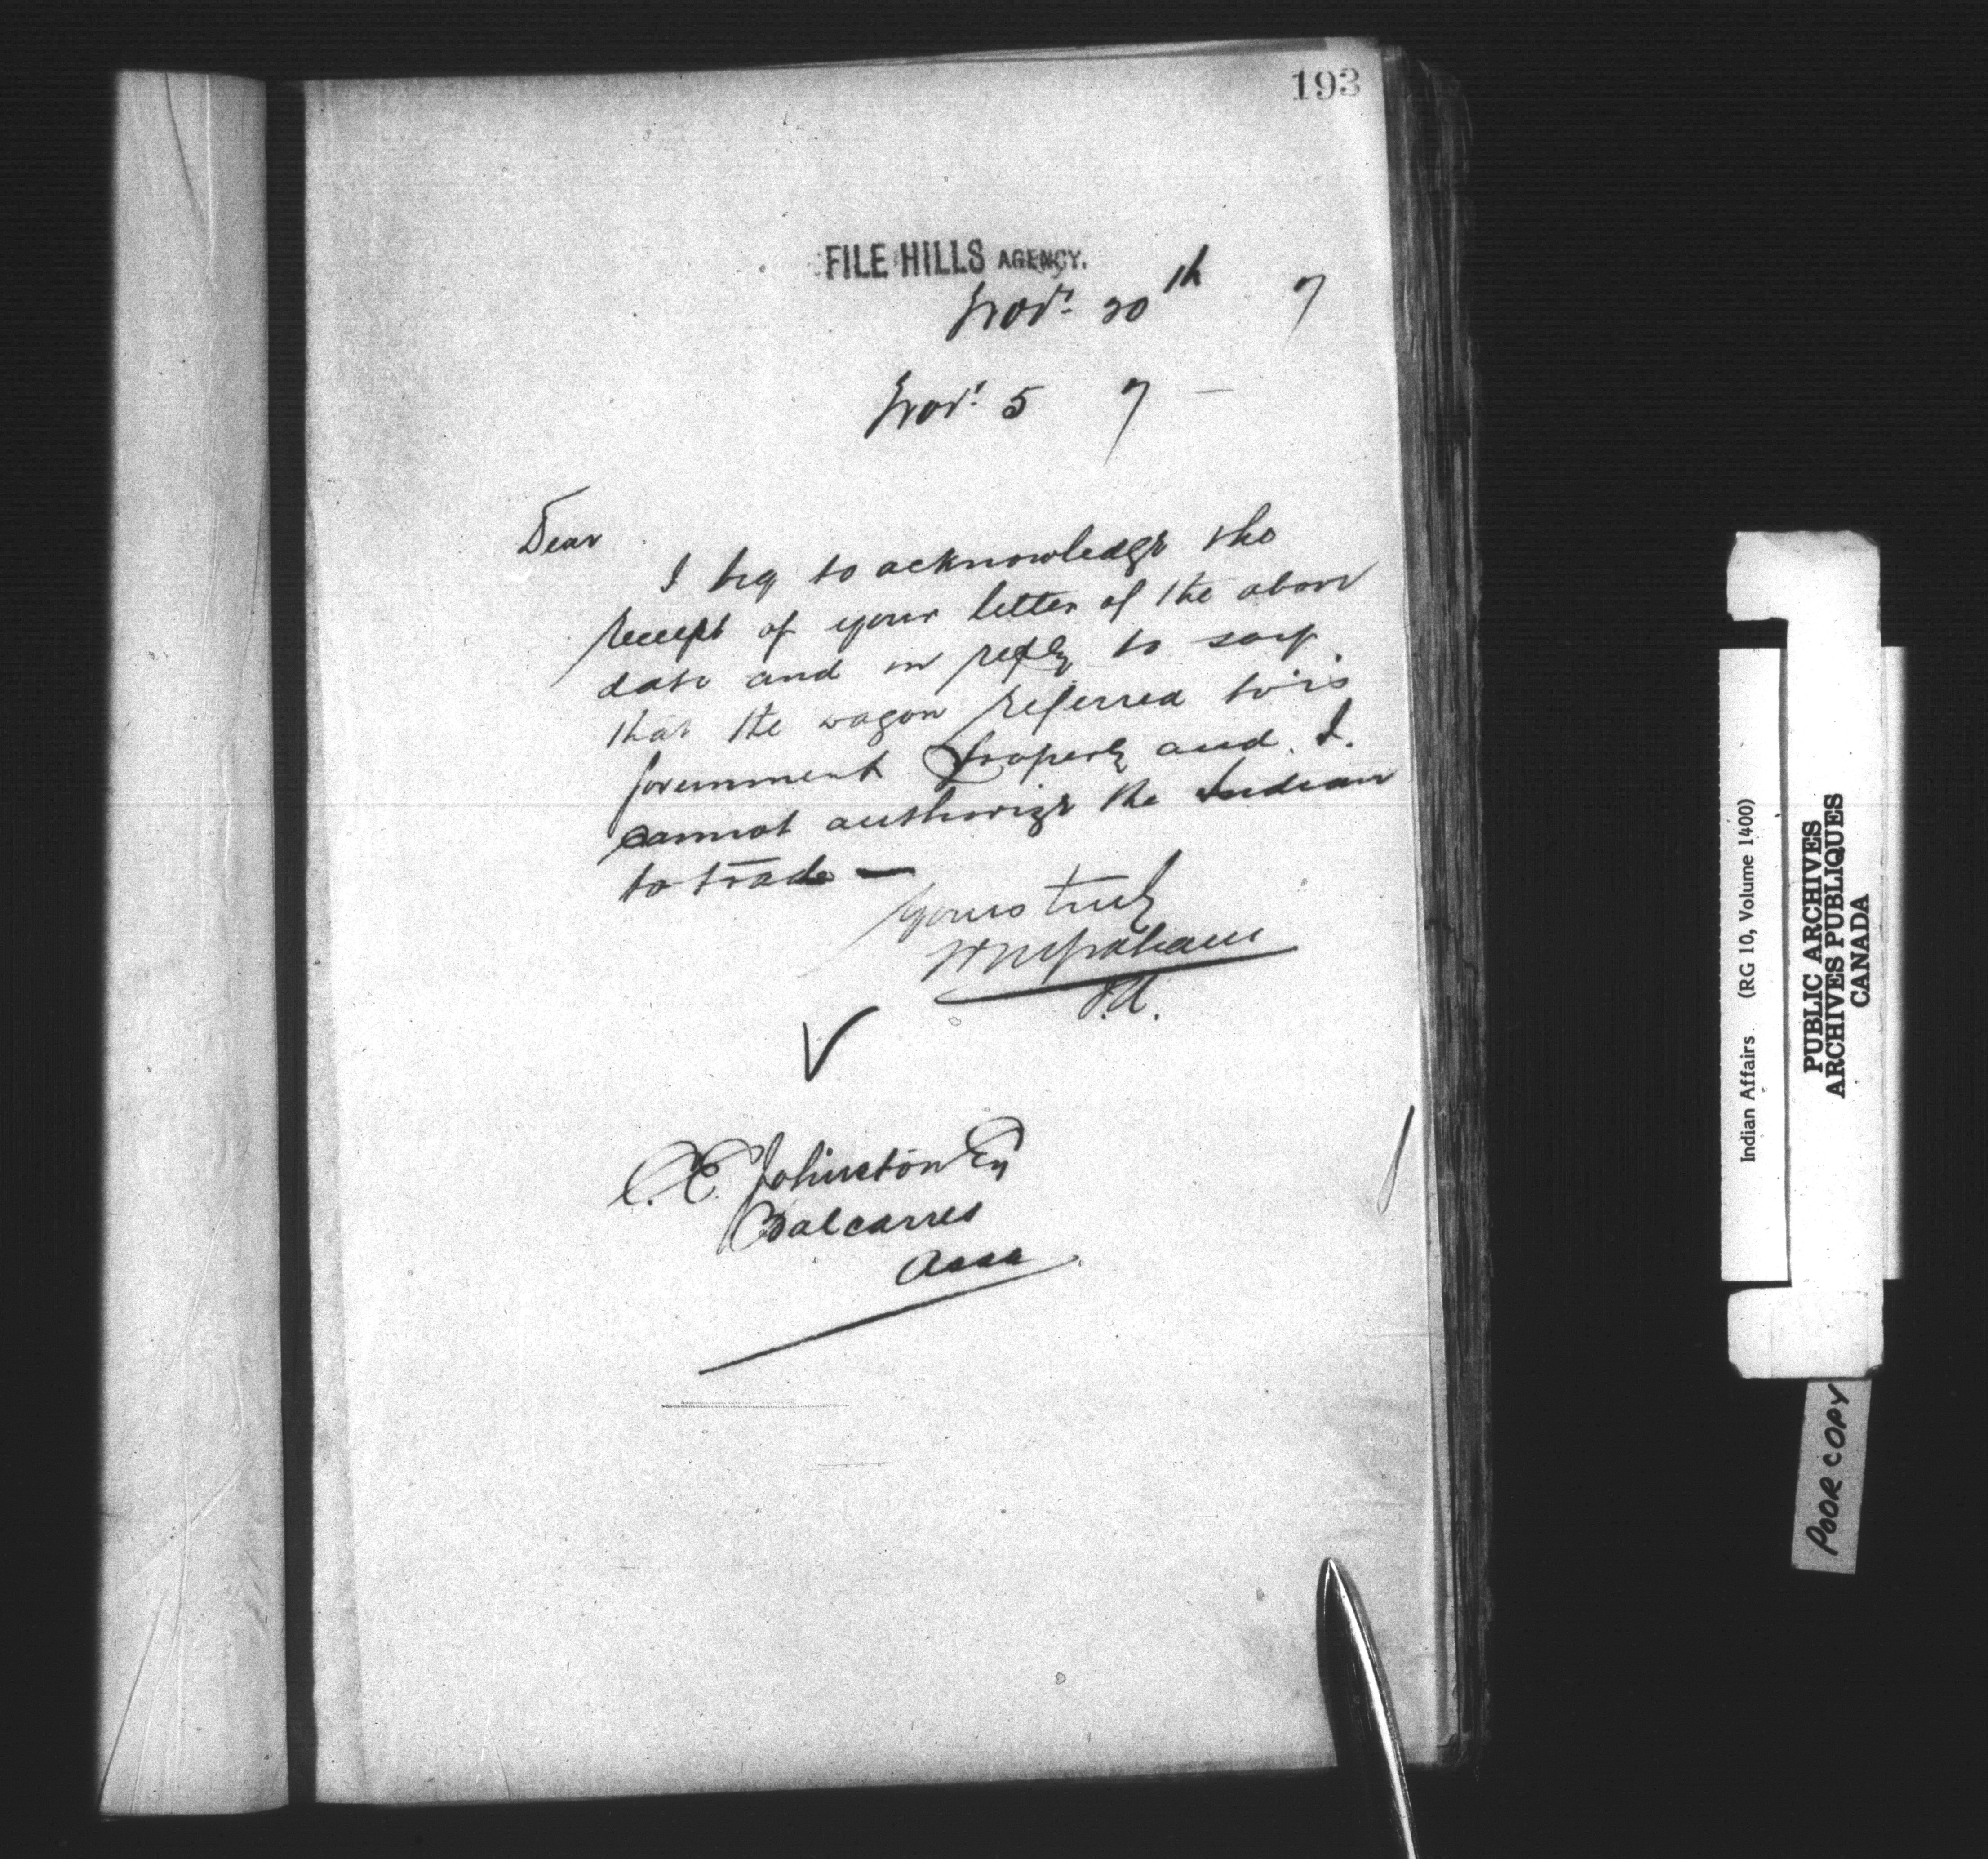 193
FILE HILLS AGENCY.
Novr. 20th 7
Novr. 5 7 —
Dear
I beg to acknowledge the
receipt of your letter of the above
date and in reply to say
that the wagon referred to is
Government property and I
cannot authorize the Indian
to trade —
Yours truly
W M Graham
I.A.
C. E. Johnston Esq
Balcarres
Assa
Indian Affairs (RG 10, Volume 1400)
PUBLIC ARCHIVES
ARCHIVES PUBLIQUES
CANADA
POOR COPY